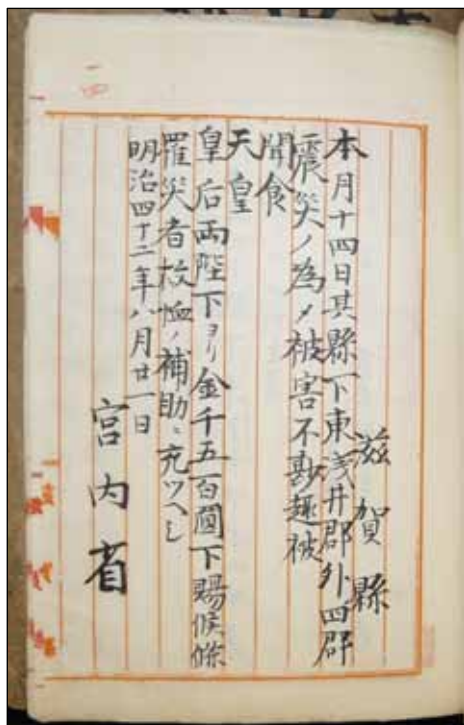 滋賀縣
本月十四日其縣下東浅井郡外四郡
震災ノ為メ被害不尠趣被
聞食
天皇
皇后両陛下ヨリ金千五百圓下賜候條
罹災者救恤ノ補助ニ充ツヘシ
明治四十二年八月廿一日
宮内省
一四